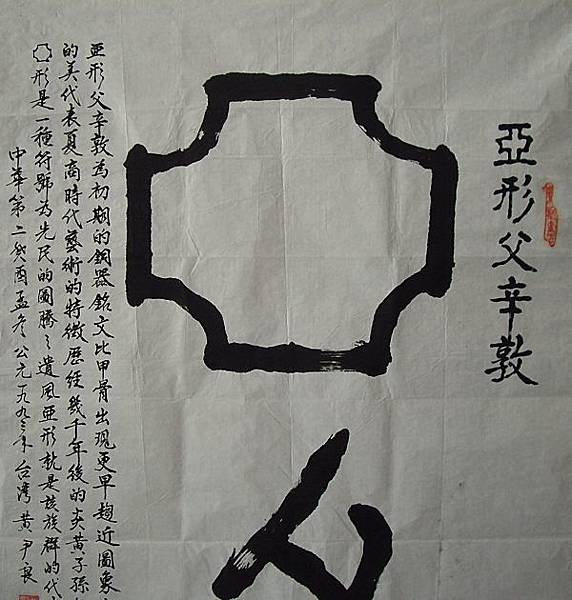 亞形父辛敦
亞形父辛敦為初期的銅器銘文比甲骨出現更早趨近圖象
的美代表夏商時代藝術的特徵歷經幾千年後的炎黃子孫
形是一種符號為先民的圖騰之遺風亞形就是該族群的代
中華第二癸酉孟冬公元一九九三年台灣黃尹良